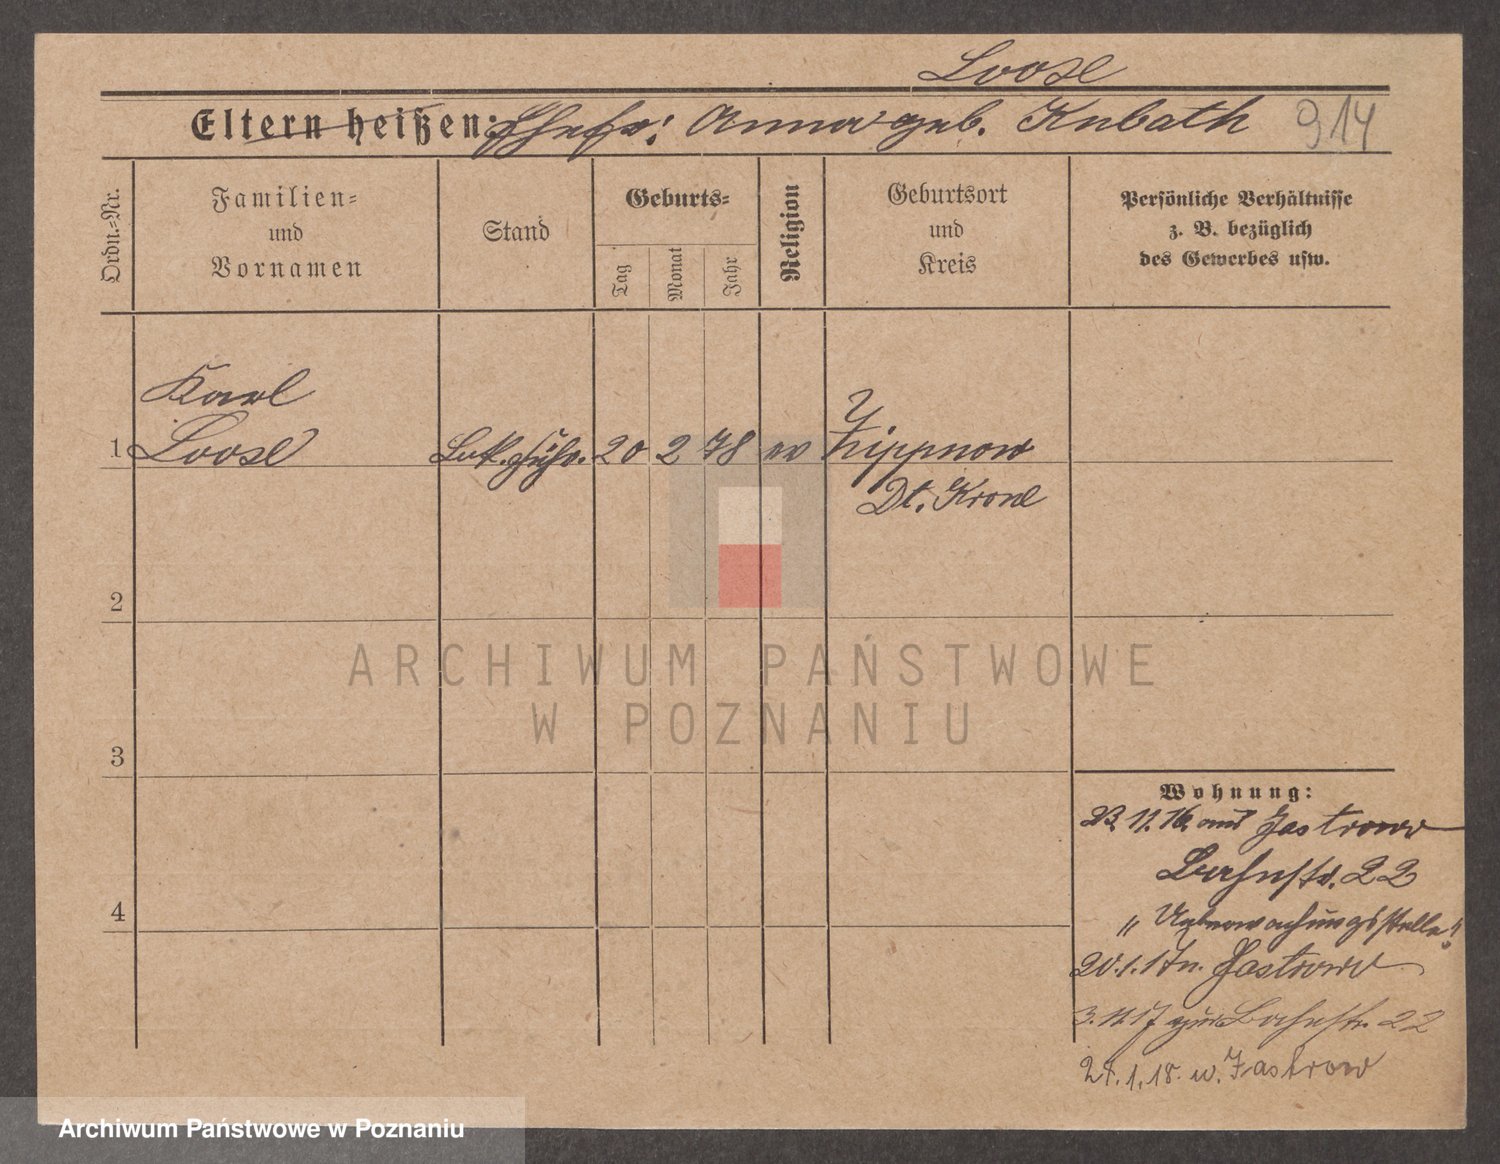 Loose
Eltern heißen: Ehefr: Anna geb. Kubath 914
Ordn.=Nr.
Familien=
und
Vornamen
Stand
Geburts=
Tag
Monat
Jahr
Religion
Geburtsort
und
Kreis
Persönliche Verhältnisse
z. B. bezüglich
des Gewerbes usw.
Karl
1 Loose Lok.führ. 20 2 78 ev Zippnow
Dt. Krone
2
3
4
Wohnung:
23. 11. 16. aus Jastrow
Bahnstr. 22
„Ueberwachungsstelle“
20. 1. 17 n. Jastrow
3. 11. 17 Bahnstr. 22
1. 18. n. Jastrow
ARCHIWUM PAŃSTWOWE
W POZNANIU
Archiwum Państwowe w Poznaniu